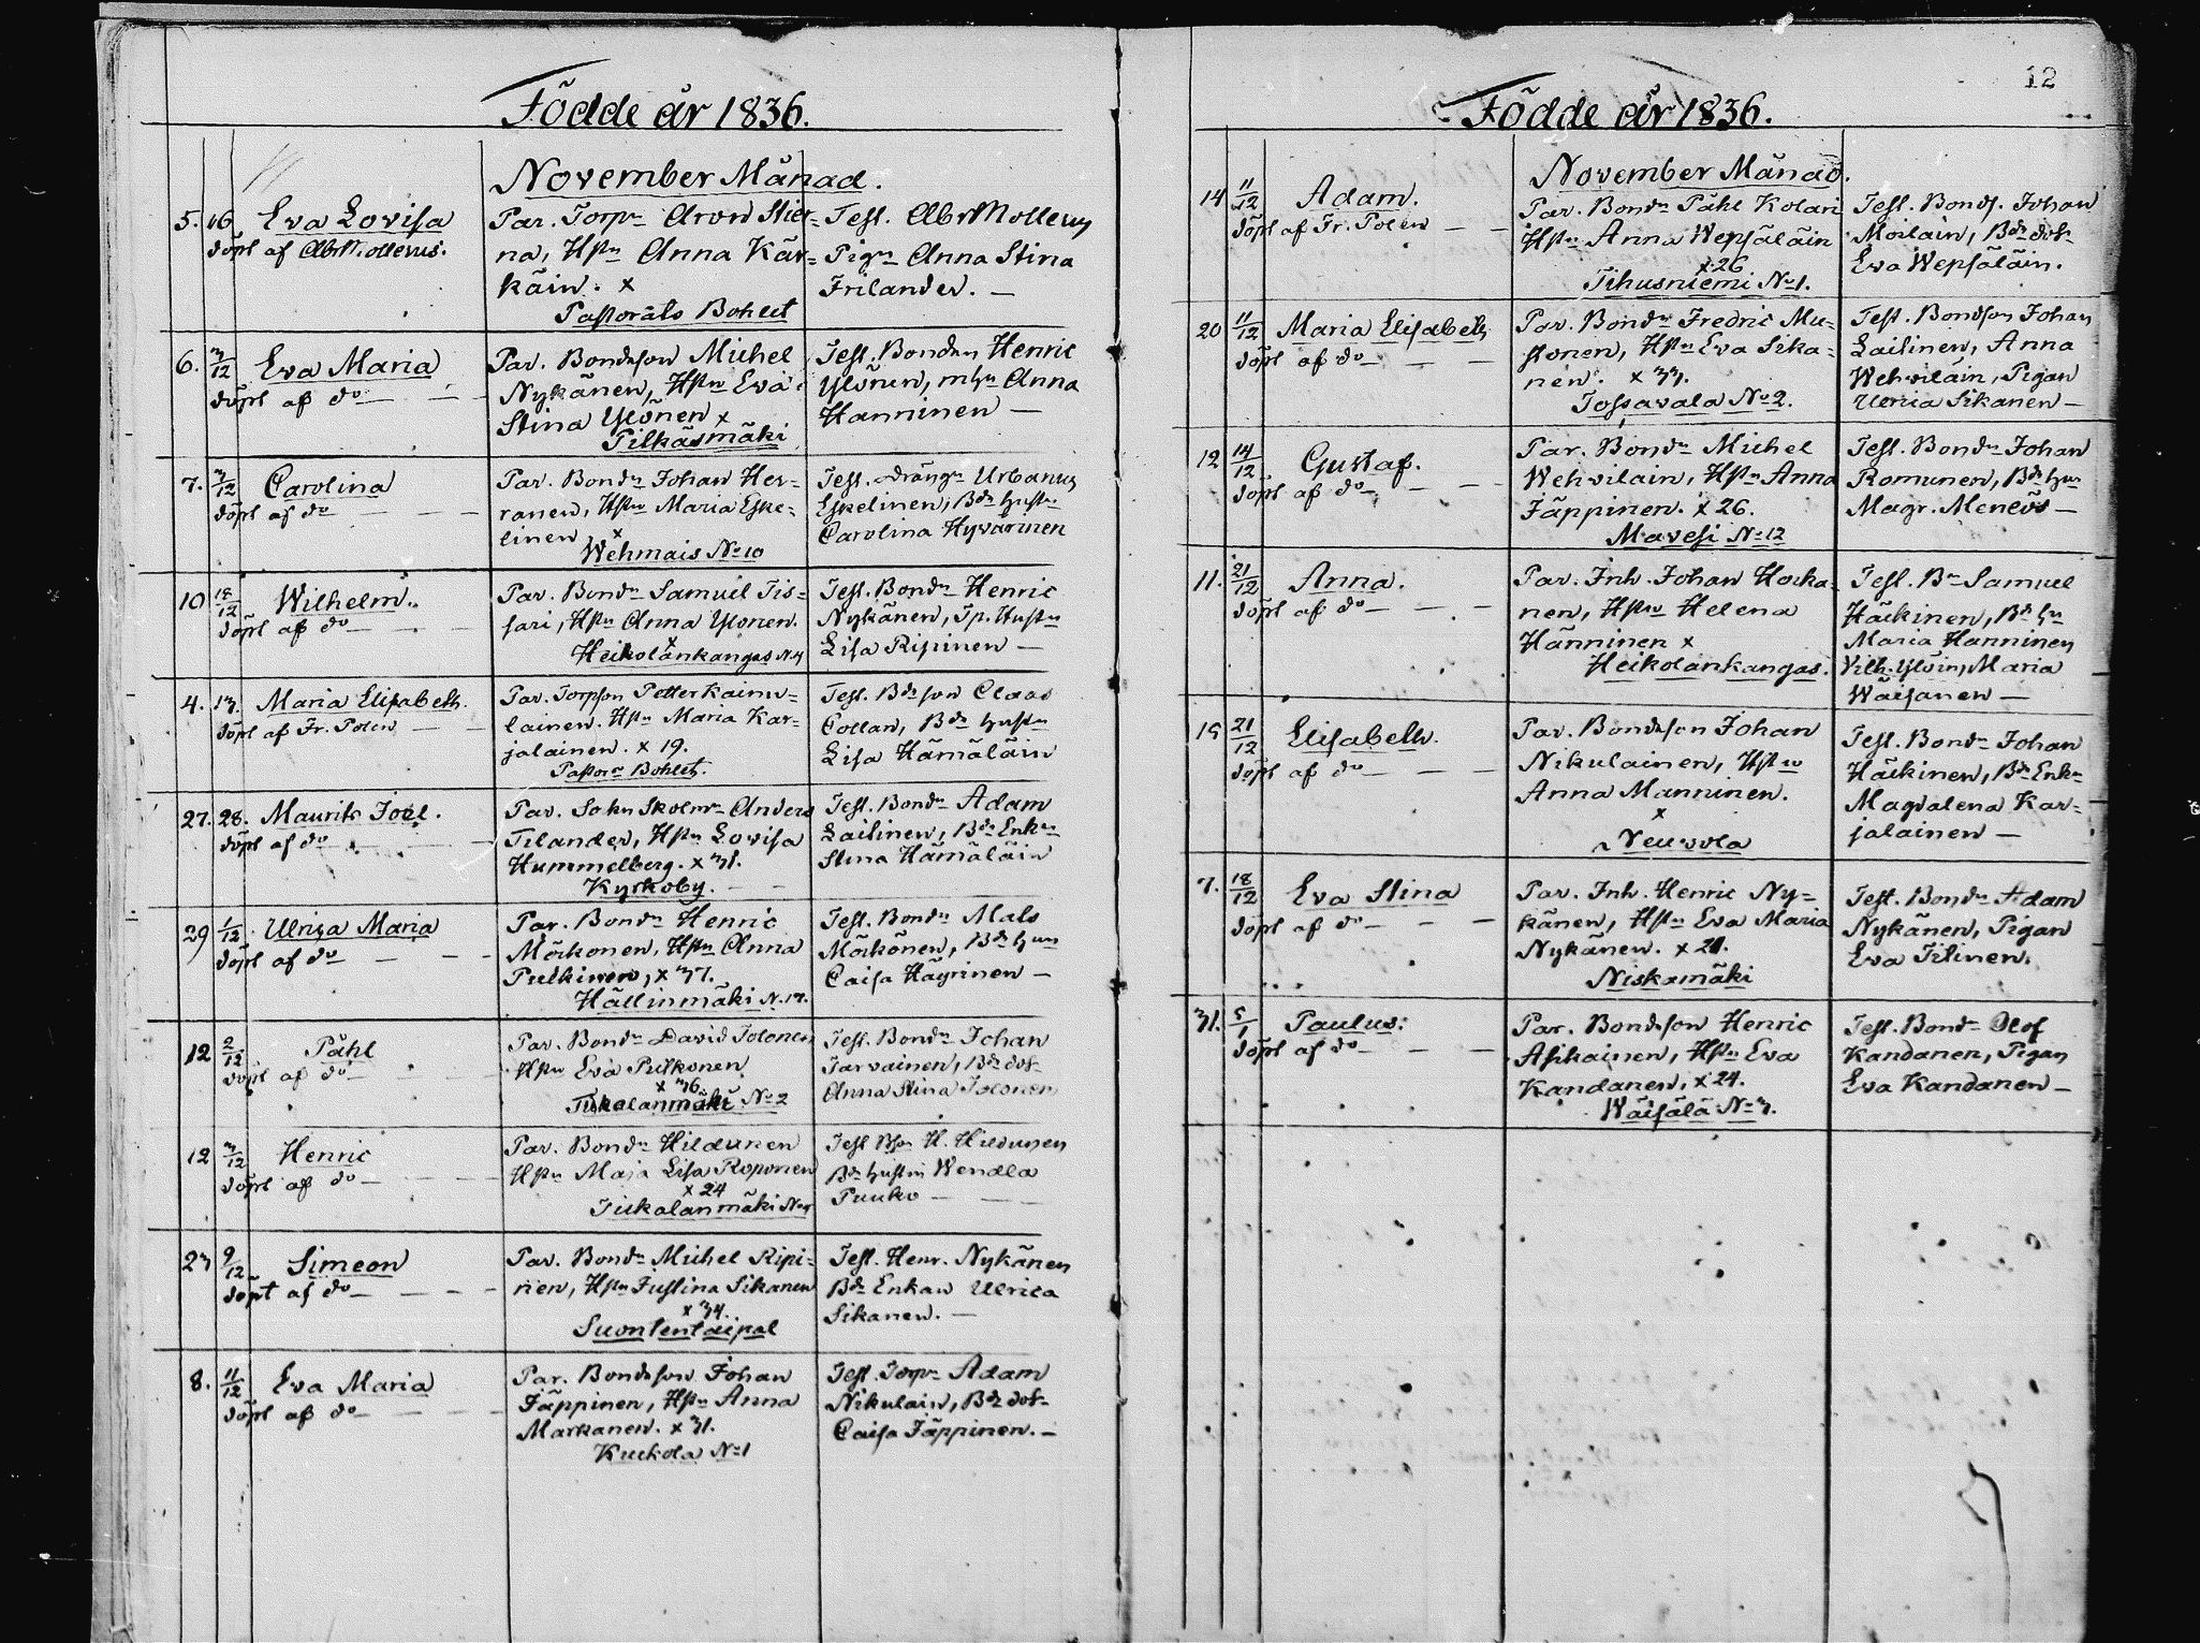 Födde år 1836.
November Månad.
5. 16 Eva Lovisa
döpt af Abr Mollerus.
Par. Torpn Aron Stier=
na, Hstn Anna Kär=
käin. x
Pastorats Bohlet
Test. Abr Mollerus
Pign Anna Stina
Frilander. —
6. 7/12 Eva Maria
döpt af do —
Par. Bondeson Michel
Nykänen, Hstn Eva
Stina Ylönen x
Pilkäsmäki
Test. Bonden Henric
Ylönen, mhn Anna
Hanninen —
7. 7/12 Carolina
döpt af do — — —
Par. Bondn Johan Her=
ranen, Hstn Maria Eske=
linen x
Wehmais No 10
Test. Drängn Urbanus
Eskelinen, Bds hustn
Carolina Hyvärinen
10 18/12 Wilhelm.
döpt af do — —
Par. Bondn Samuel Tis=
sari, Hstn Anna Ylönen.
x
Heikolankangas N.4
Test. Bondn Henric
Nykänen, Tp. Hustn
Lisa Ripinen —
4. 17. Maria Elisabeth.
döpt af Fr. Polen — —
Par. Torpson Petter Kainu=
lainen. Hstn Maria Kar=
jalainen. x 19.
Pastors Bohlet.
Test. Bdeson Claas
Collan, Bds hustn
Lisa Hämäläin
27. 28. Maurits Joel.
döpt af do — —
Par. Sokn Skolmr Anders
Tilander, Hstn Lovisa
Hummelberg. x 31.
Kyrkoby. — —
Test. Bondn Adam
Laitinen, Bds Enkn
Stina Hämäläin
29 1/12 Ulrica Maria
döpt af do — — —
Par. Bondn Henric
Mörkonen, Hstn Anna
Pulkinen, x 37.
Hällinmäki N. 17.
Test. Bondn Mats
Mörkönen, Bds hun
Caisa Hägrinen —
12 2/12 Påhl
döpt af do —
Par. Bondn David Tolonen
Hstn Eva Putkonen
x 36.
Tukalanmäki No 2
Test. Bondn Johan
Tarvainen, Bds dotr
Anna Stina Tolonen
12 3/12 Henric
döpt af do —
Par. Bondn Hildunen
Hstn Maja Lisa Roponen
x 24
Tiukalanmäki No
Test Bson H. Hildunen
Bds hustru Wendla
Puuko —
27 9/12 Simeon
döpt af do — — —
Par. Bondn Michel Ripi=
nen, Hstn Justina Sikanen
x 34.
Suontentaipal
Test. Henr. Nykänen
Bds Enkan Ulrica
Sikanen. —
8. 11/12 Eva Maria
döpt af do — — —
Par. Bondeson Johan
Jäppinen, Hstn Anna
Markanen. x 31.
Kuckola No 1
Test. Torpn Adam
Nikulain, Bds dotr
Caisa Jäppinen. —
12
Födde år 1836.
November Månad.
14 11/12 Adam.
döpt af Fr. Polen — —
Par. Bondn Påhl Kolari
Hstn Anna Wepsäläin
x 26
Tihusniemi No 1.
Test. Bonds. Johan
Moilain, Bds dotr
Eva Wepsäläin.
20 11/12 Maria Elisabeth
döpt af do — —
Par. Bondn Fredric Mu=
stonen, Hstn Eva Sika=
nen. x 33.
Tossavala No 2.
Test. Bondson Johan
Laitinen, Anna
Wehviläin, Pigan
Ulrica Sikanen —
12 14/12 Gustaf.
döpt af do — — —
Par. Bondn Michel
Wehvilain, Hstn Anna
Jäppinen. x 26.
Mavesi No 12
Test. Bondn Johan
Romunen, Bds hun
Magr. Menlös —
11. 21/12 Anna.
döpt af do — — —
Par. Inh. Johan Hocka=
nen, Hstn Helena
Hänninen x
Heikolankangas.
Test. Bn Samuel
Häckinen, Bds hn
Maria Hanninen
Vilh. Ylöin, Maria
Wäisänen —
19 21/12 Elisabeth.
döpt af do — — —
Par. Bondeson Johan
Nikulainen, Hstn
Anna Manninen.
x
Neuvola
Test. Bondn Johan
Häckinen, Bds Enkn
Magdalena Kar=
jalainen —
7. 18/12 Eva Stina
döpt af do — — —
Par. Inh. Henric Ny=
känen, Hstn Eva Maria
Nykänen. x 21.
Niskamäki
Test. Bondn Adam
Nykänen, Pigan
Eva Iitinen.
31. 5/1 Paulus.
döpt af do — — —
Par. Bondeson Henric
Asikainen, Hstn Eva
Kandanen, x 24.
Wäisälä No 3.
Test. Bondn Olof
Kandanen, Pigan
Eva Kandanen —